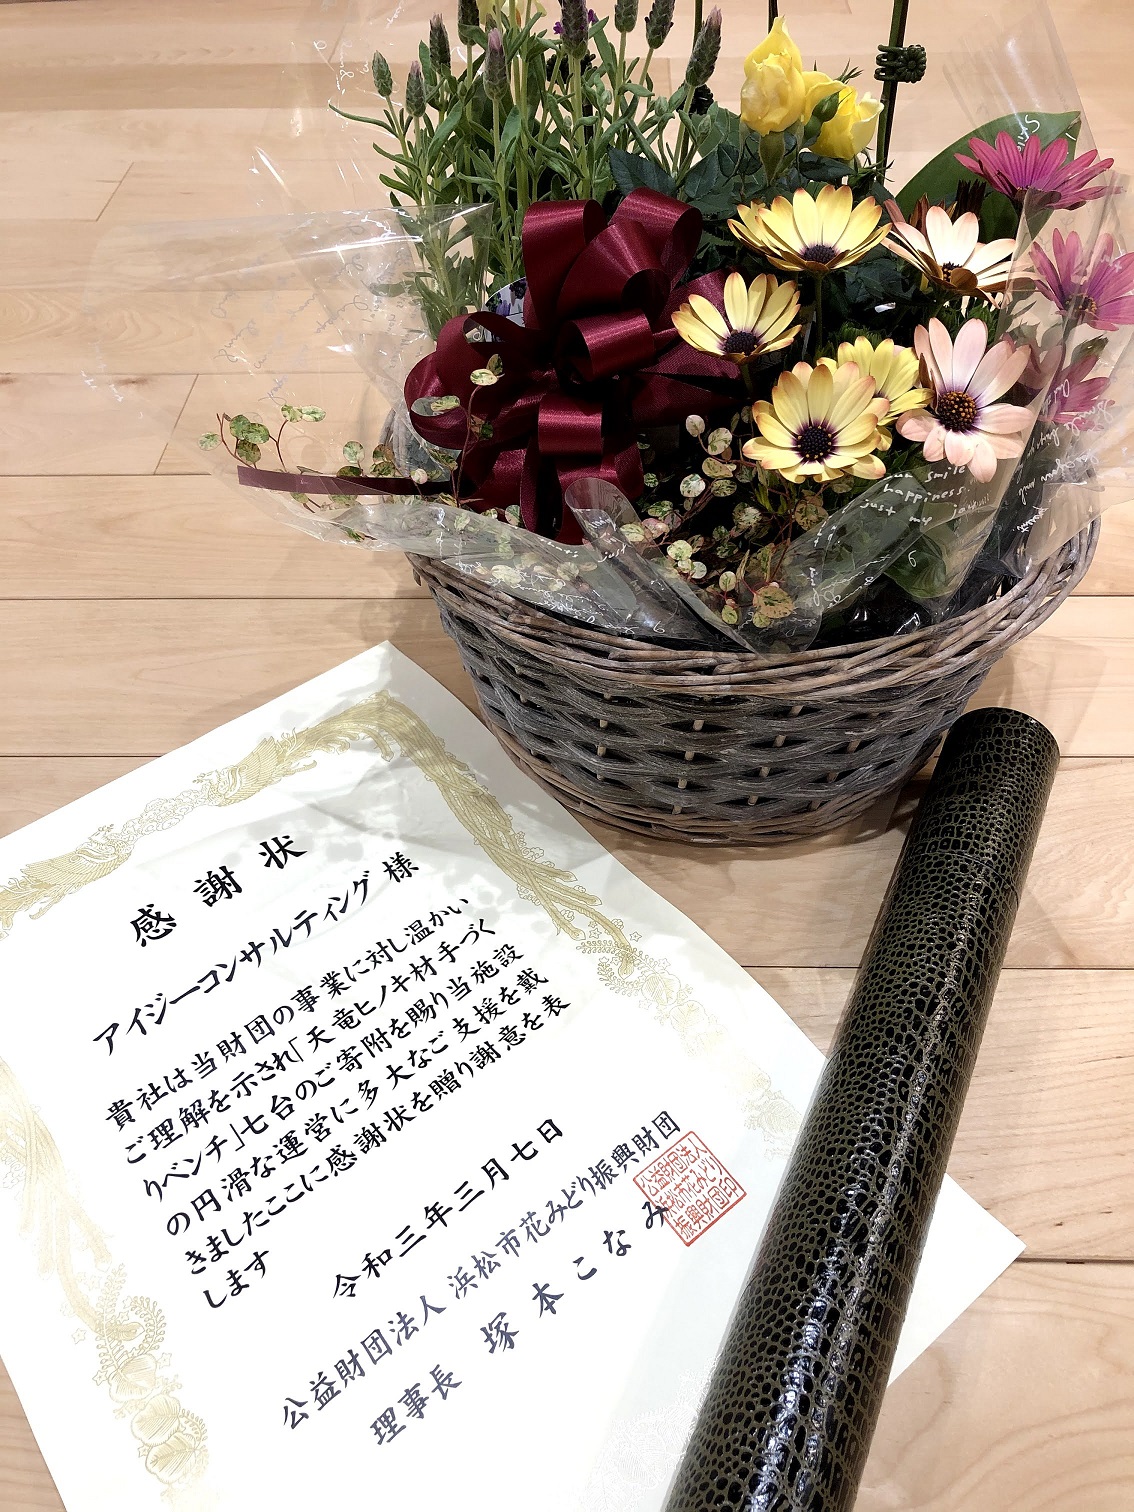 感謝状
アイジーコンサルティング 様
貴社は当財団の事業に対し温かい
ご理解を示され「天竜ヒノキ材手づく
りベンチ」七台のご寄附を賜り当施設
の円滑な運営に多大なご支援を戴
きましたここに感謝状を贈り謝意を表
します
令和三年三月七日
公益財団法人 浜松市花みどり振興財団
理事長 塚本こなみ
公益財団法人
浜松市花みどり
振興財団印
smile
happiness
just my